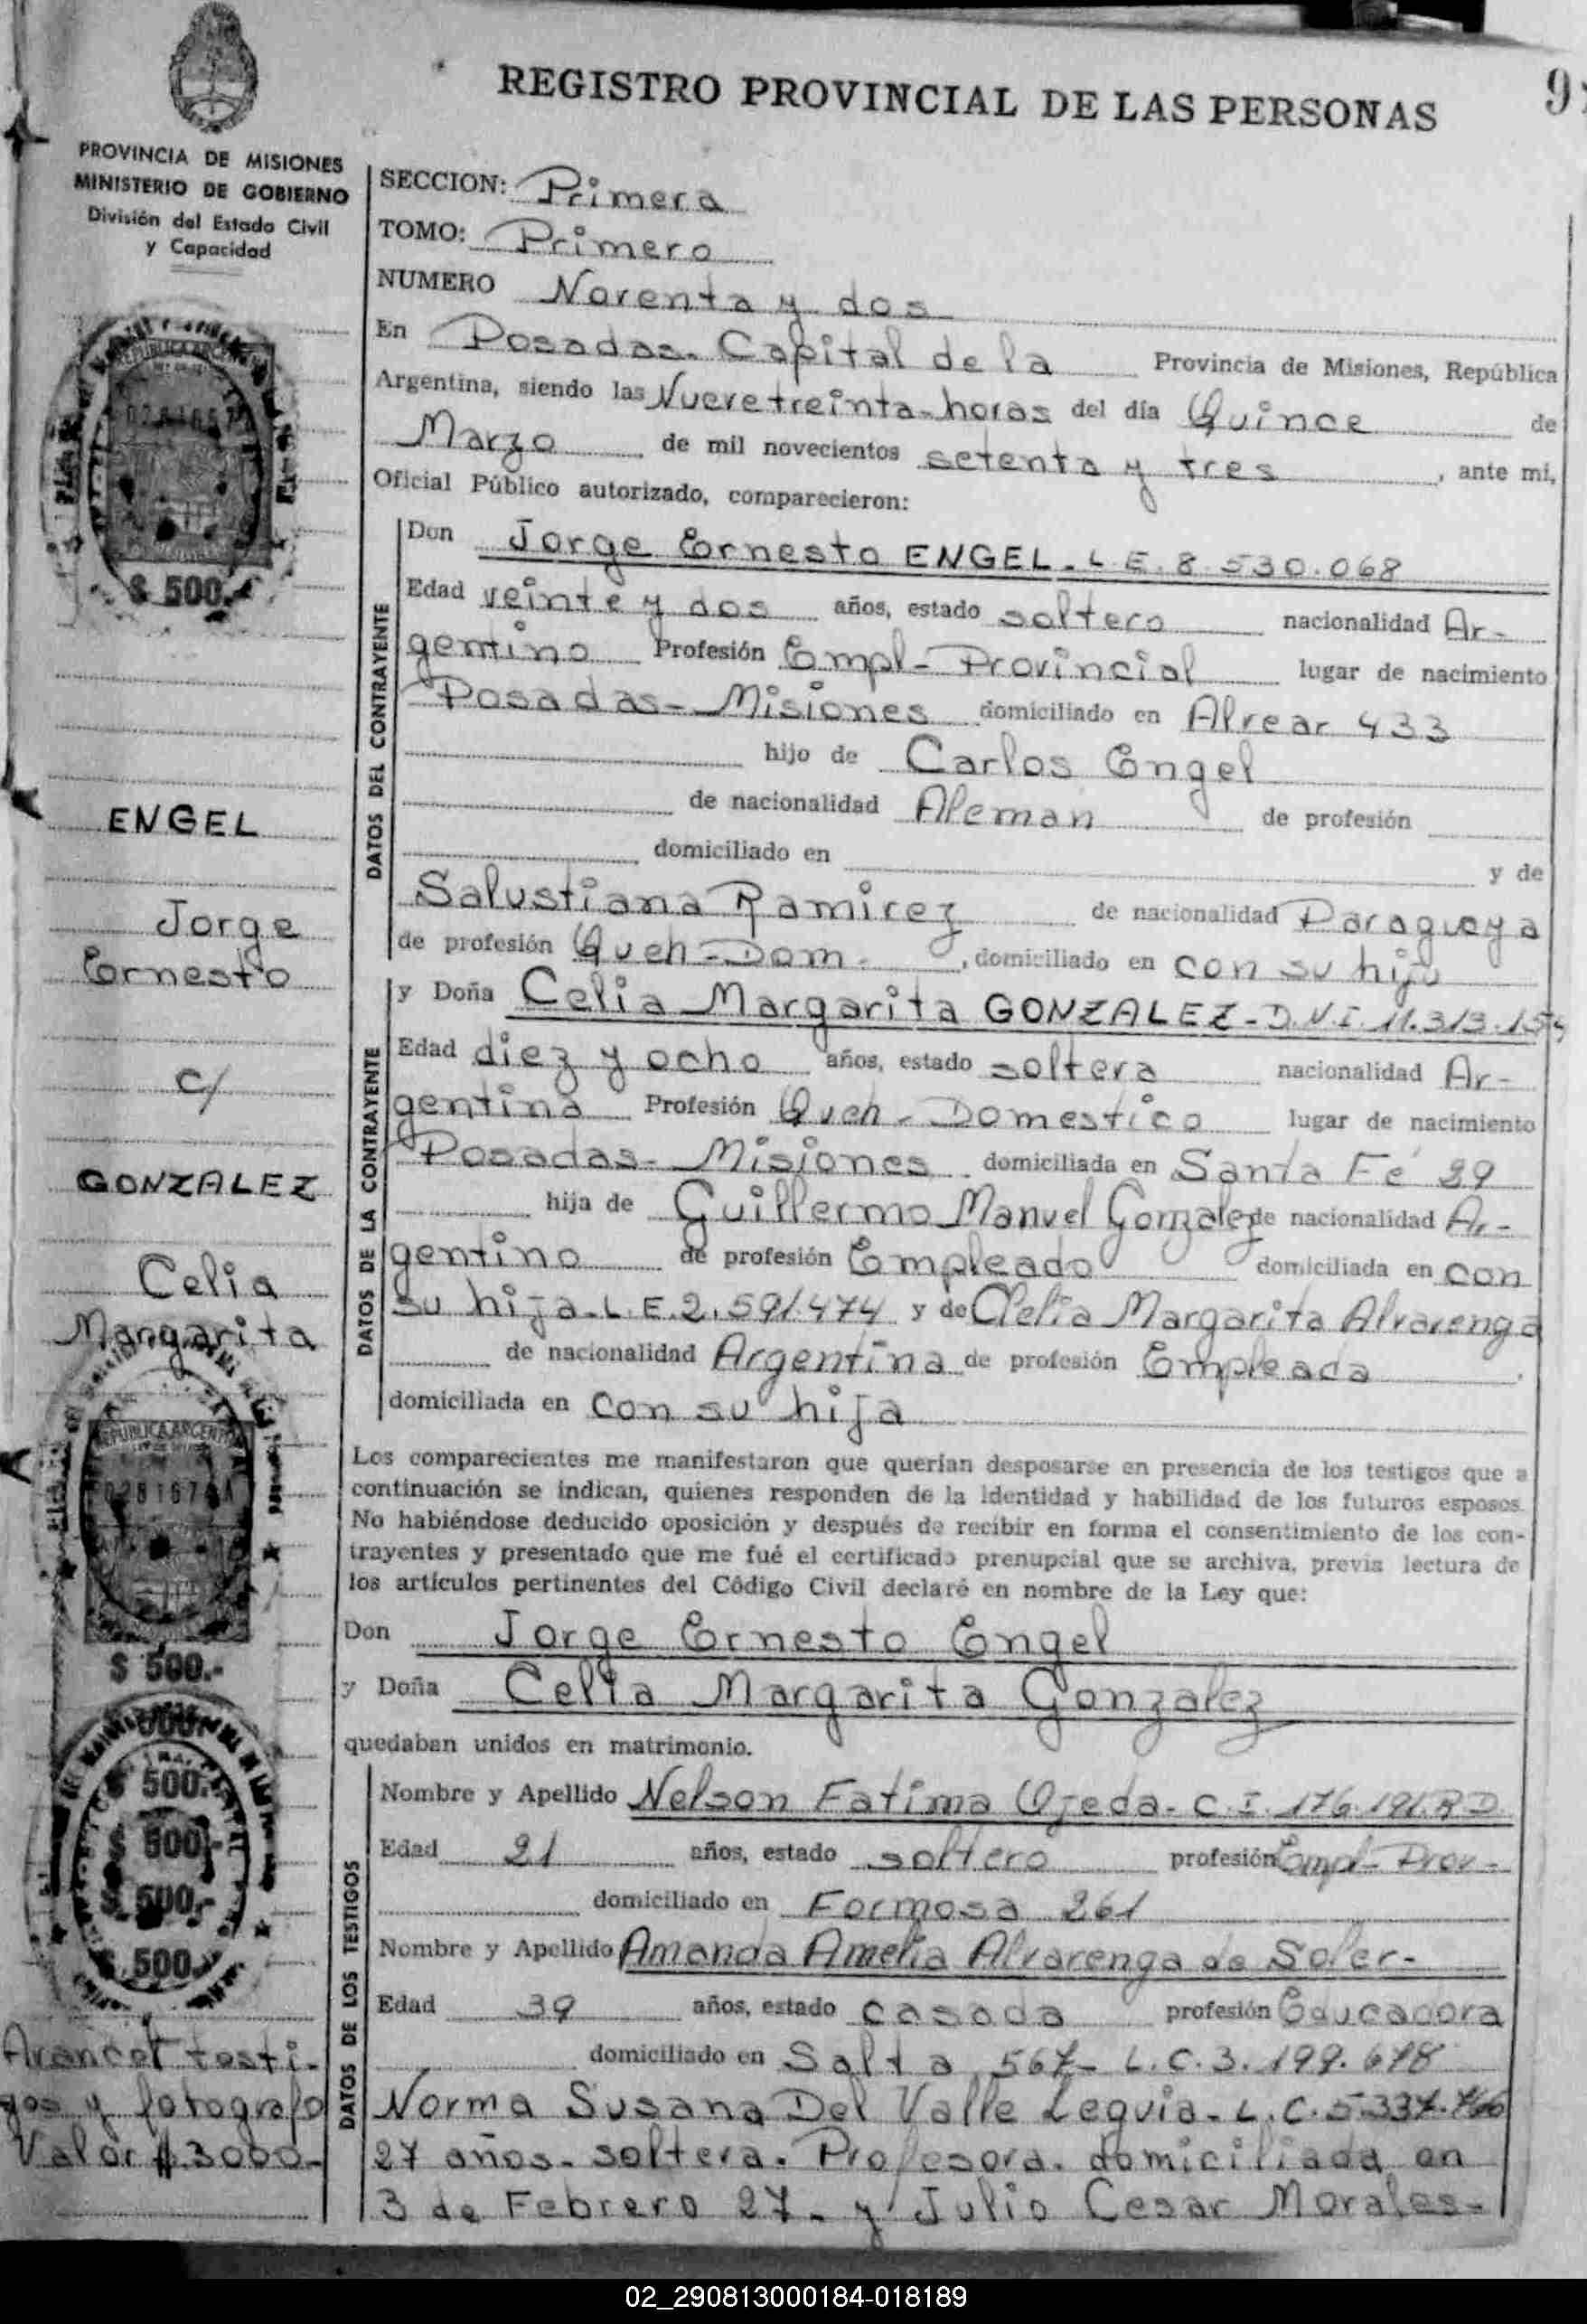 REGISTRO PROVINCIAL DE LAS PERSONAS
PROVINCIA DE MISIONES
MINISTERIO DE GOBIERNO
División del Estado Civil
y Capacidad
SECCION: Primera
TOMO: Primero
NUMERO Noventa y dos
En Posadas. Capital de la Provincia de Misiones, República
Argentina, siendo las Nueve treinta-horas del día Quince de
Marzo de mil novecientos setenta y tres, ante mí,
Oficial Público autorizado, comparecieron:
DATOS DEL CONTRAYENTE
Don Jorge Ernesto ENGEL - L.E. 8.530.068
Edad veinte y dos años, estado soltero nacionalidad Ar-
gentino Profesión Empl- Provincial lugar de nacimiento
Posadas- Misiones domiciliado en Alvear 433
hijo de Carlos Engel
de nacionalidad Aleman de profesión
domiciliado en y de
Salustiana Ramirez de nacionalidad Paraguaya
de profesión Queh-Dom-, domiciliado en con su hijo
DATOS DE LA CONTRAYENTE
y Doña Celia Margarita GONZALEZ - D.N.I. 11.313.154
Edad diez y ocho años, estado soltera nacionalidad Ar-
gentina Profesión Queh- Domestico lugar de nacimiento
Posadas- Misiones domiciliada en Santa Fé 29
hija de Guillermo Manuel Gonzalez de nacionalidad Ar-
gentino de profesión Empleado domiciliada en con
su hija - L.E. 2.591.474 y de Clelia Margarita Alvarenga
de nacionalidad Argentina de profesión Empleada
domiciliada en con su hija
Los comparecientes me manifestaron que querían desposarse en presencia de los testigos que a
continuación se indican, quienes responden de la identidad y habilidad de los futuros esposos.
No habiéndose deducido oposición y después de recibir en forma el consentimiento de los con-
trayentes y presentado que me fué el certificado prenupcial que se archiva, previa lectura de
los artículos pertinentes del Código Civil declaré en nombre de la Ley que:
Don Jorge Ernesto Engel
y Doña Celia Margarita Gonzalez
quedaban unidos en matrimonio.
DATOS DE LOS TESTIGOS
Nombre y Apellido Nelson Fatima Ojeda - C.I. 176.191.RD
Edad 21 años, estado soltero profesión Empl- Prov-
domiciliado en Formosa 261
Nombre y Apellido Amanda Amelia Alvarenga de Soler-
Edad 39 años, estado casada profesión Educadora
domiciliado en Salta 567- L.C. 3.199.678
Norma Susana Del Valle Leguia - L.C. 5.337.
27 años - soltera. Profesora. domiciliada en
3 de Febrero 27 - y Julio Cesar Morales-
REPUBLICA ARGENTINA
$ 500.-
ENGEL
Jorge
Ernesto
c/
GONZALEZ
Celia
Margarita
REPUBLICA ARGENTINA
$ 500.-
$ 500.-
$ 500.-
$ 500.-
$ 500.-
Arancel testi-
gos y fotografo
Valor $ 3000-
02_290813000184-018189